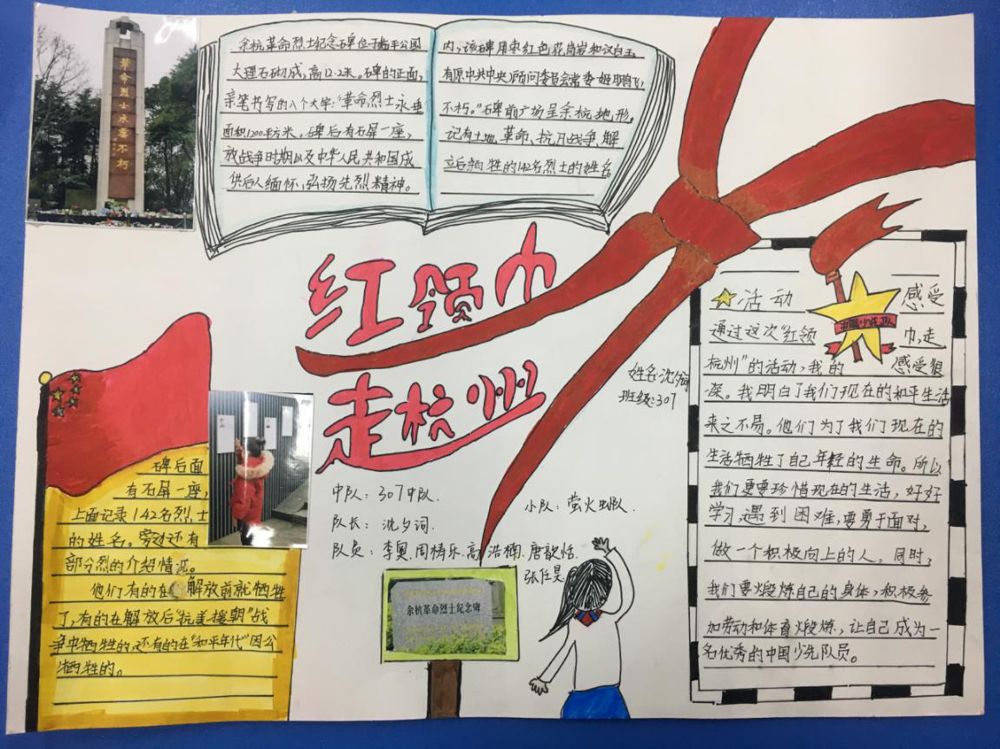 革命烈士永垂不朽
余杭革命烈士纪念碑位于临平公园内,该碑用枣红色花岗岩和汉白玉
大理石砌成,高12.2米。碑的正面,有原中共中央顾问委员会常委姬鹏飞
亲笔书写的八个大字:“革命烈士永垂不朽。”碑前广场呈余杭地形,
面积1200平方米。碑后有石屏一座,记有土地革命、抗日战争、解
放战争时期以及中华人民共和国成立后牺牲的142名烈士的姓名
供后人缅怀,弘扬先烈精神。
红领巾
走杭州
姓名:沈夕
班级:307
中队:307中队.
小队:萤火虫队
队长:沈夕词.
队员:李奥.周 乐.高浩楠.唐歆恬.
张任昊
碑后面
有石屏一座,
上面记录142名烈士
的姓名,旁边还有
部分烈的介绍情况。
他们有的在解放前就牺牲
了,有的在解放后“抗美援朝”战
争中牺牲的,还有的在“和平年代”因公
牺牲的。
余杭革命烈士纪念碑
活动感受
中国少年队
通过这次“红领巾,走
杭州”的活动,我的感受很
深。我明白了我们现在的和平生活
来之不易。他们为了我们现在的
生活牺牲了自己年轻的生命。所以
我们更要珍惜现在的生活,好好
学习,遇到困难,要勇于面对,
做一个积极向上的人。同时,
我们要煅炼自己的身体,积极参
加劳动和体育煅炼,让自己成为一
名优秀的中国少先队员。